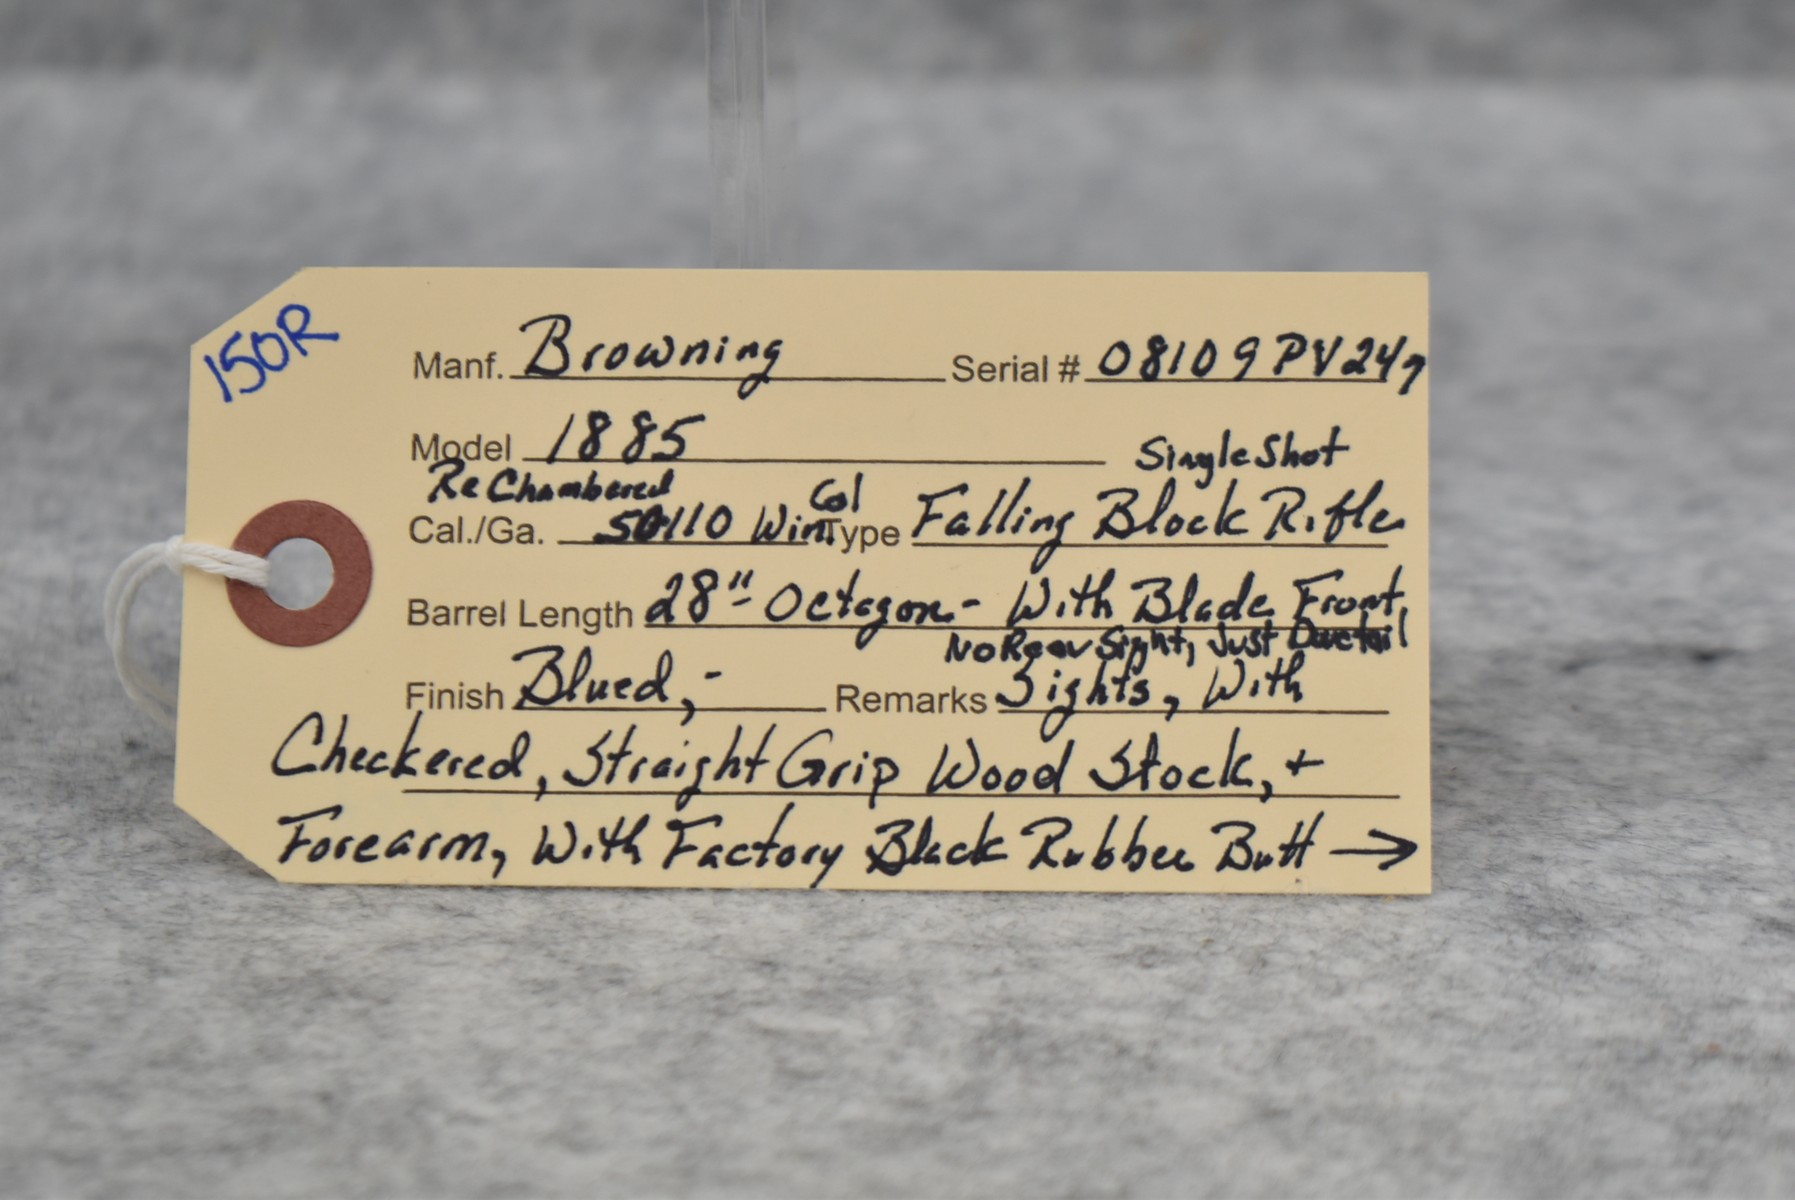 150R
Manf. Browning Serial # 08109PV247
Model 1885 Single Shot
ReChambered Cal
Cal./Ga. 50-110 Win Type Falling Block Rifle
Barrel Length 28" Octagon - With Blade Front,
No Rear Sight, Just Dovetail
Finish Blued, - Remarks Sights, With
Checkered, Straight Grip Wood Stock, +
Forearm, With Factory Black Rubber Butt →